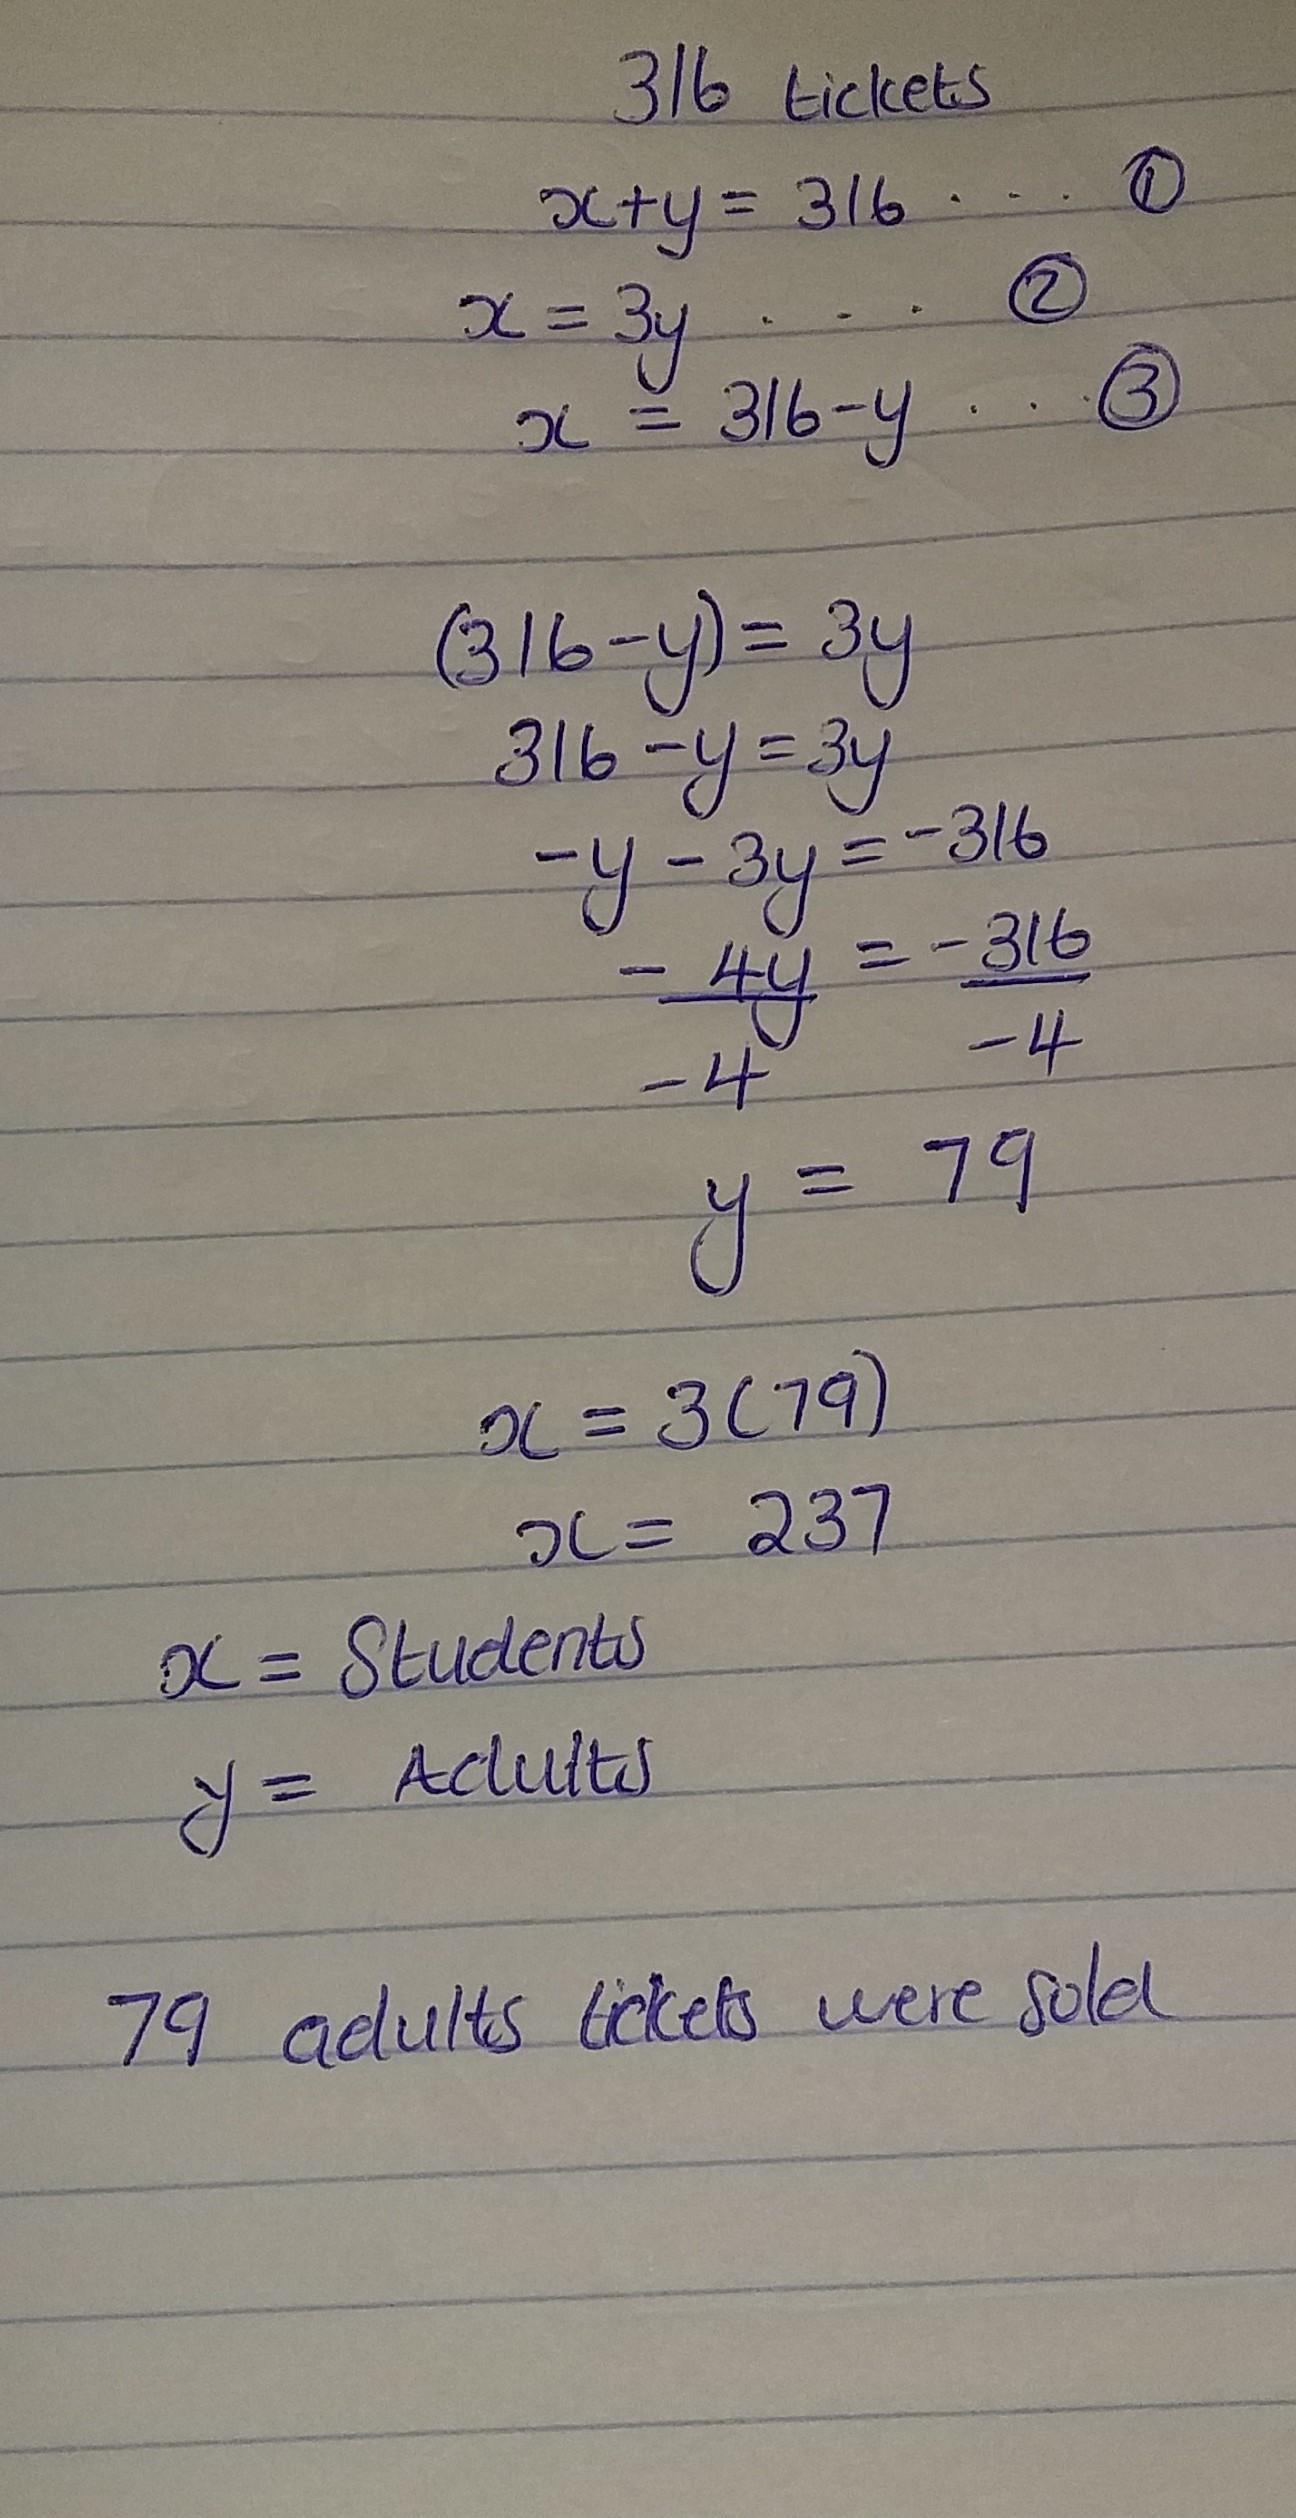 316 tickets
x+y = 316 . . . ①
x = 3y . . . ②
x = 316-y . . . ③
(316-y) = 3y
316-y = 3y
-y - 3y = -316
- 4y = -316
-4 -4
y = 79
x = 3(79)
x = 237
x = Students
y = Adults
79 adults tickets were sold